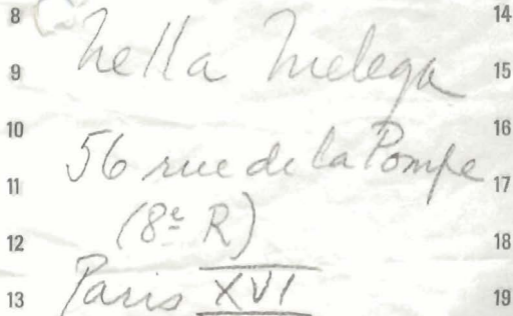 8 14
Nella Melega
9 15
10 16
56 rue de la Pompe
11 17
(8e R)
12 18
Paris XVI
13 19